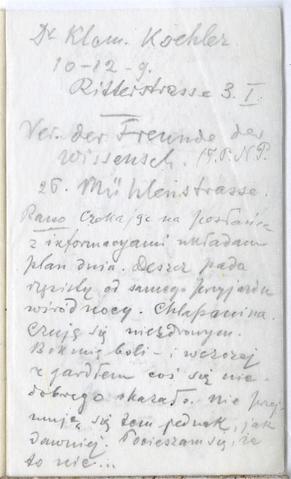 Dr Klem. Koehler.
10-12-9.
Ritterstrasse 3. I.
Ver. der Freunde der
Wissensch. T. P. N. P.
26. Mühlenstrasse.
Rano Czekając na posłańca
z informacyami układam
plan dnia. Deszcz pada
rzęsisty od samego przyjazdu
wśród nocy. Chlapanina.
Czuję się niezdrowym.
Bok mię boli – i wczoraj
z gardłem coś się nie-
dobrego okazało. Nie przej-
muję się tem jednak, jak
dawniej. Pocieszam się, że
to nic...